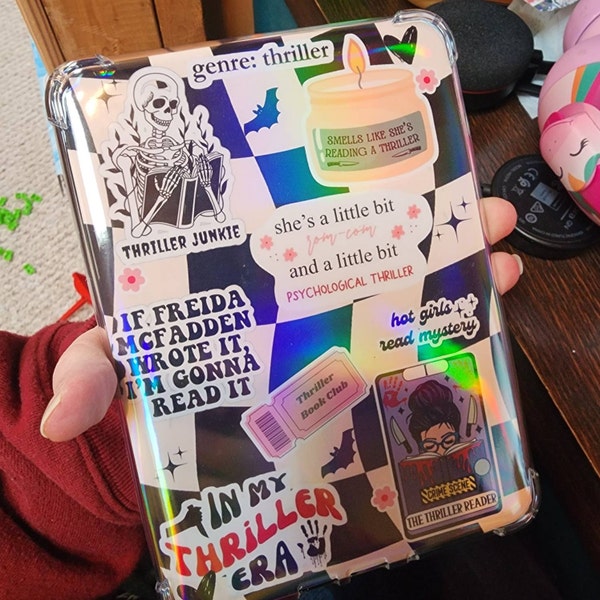 genre: thriller
SMELLS LIKE SHE'S
READING A THRILLER
THRILLER JUNKIE
she's a little bit
rom-com
and a little bit
PSYCHOLOGICAL THRILLER
IF FREIDA
MCFADDEN
WROTE IT,
I'M GONNA
READ IT
hot girls
read mystery
Thriller
Book Club
CRIME SCENE
THE THRILLER READER
IN MY
THRILLER
ERA